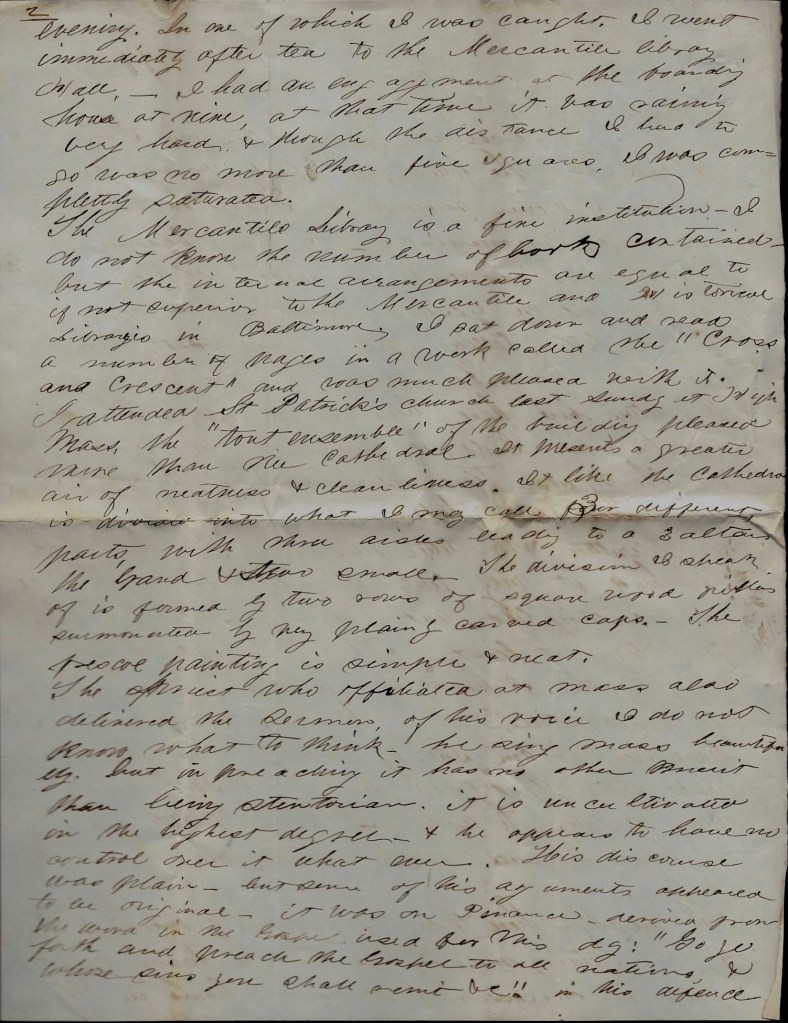 2
evening. In one of which I was caught. I went
immediately after tea to the Mercantile library
Hall, — I had an engagement at the boarding
house at nine, at that time it was raining
very hard, & though the distance I had to
go was no more than five squares, I was com=
pletly saturated.
The Mercantile Library is a fine institution — I
do not know the number of books contained —
but the internal arrangements are equal to
if not superior to the Mercantile and Historical
Libraries in Baltimore, I sat down and read
a number of pages in a work called the "Cross
and Crescent" and was much pleased with it.
I attended St Patrick's church last Sundy at High
Mass, the "tout ensemble" of the building pleased
more than the Cathedral. It presents a greater
air of neatness & cleanliness. It like the Cathedral
is divided into what I may call 3 different
parts, with three aisles leading to a 3 altars
the Grand & two small. The division I speak
of is formed by two rows of square wood pillars
surmounted by very plainly carved caps. — The
frescoe painting is simple & neat.
The priest who offiliated at mass also
delivered the sermon, of his voice I do not
know what to think — he sing mass beautifu
ly. but in preaching it has no other merit
than being stentorian. it is uncultivated
in the highest degree — & he appears to have no
control over it what ever. His discourse
was plain — but some of his arguments appeared
to be original — it was on Pinance — derived from
the word in the Gospe used for this day: "Go ye
forth and preach the Gospel to all nations, &
whose sins you shall remit &c"! in his defence